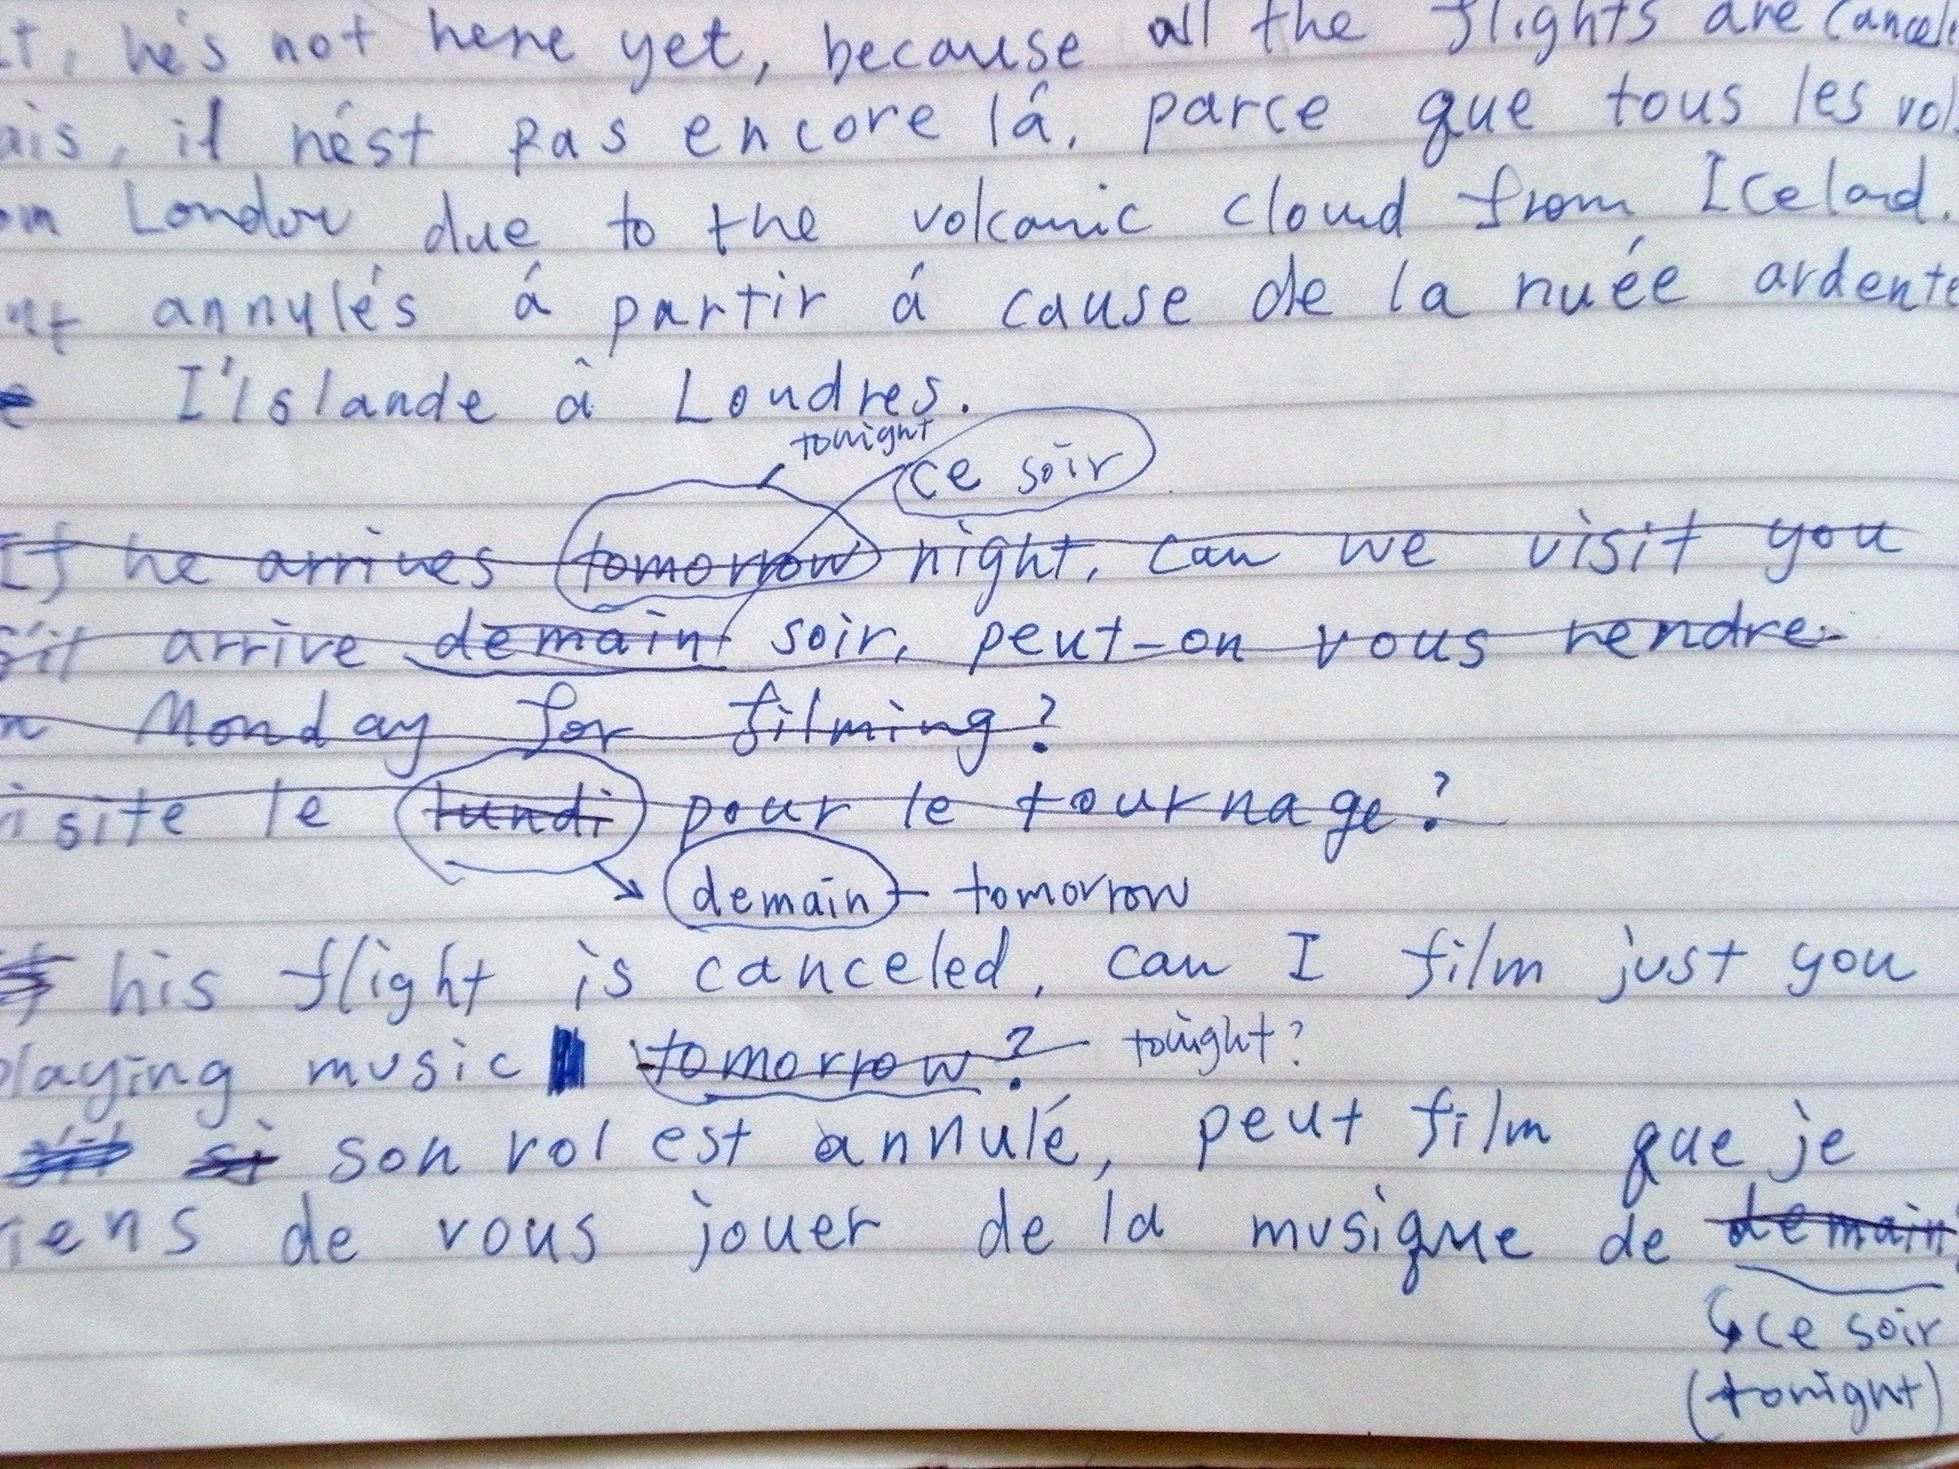 t, he's not here yet, because all the flights are cancel
ais, il nést pas encore lá, parce que tous les vol
om London due to the volcanic cloud from Icelad.
nt annulés á partir á cause de la nuée ardente
e I'Islande â Londres.
tonight
ce soir
If he arrives tomorrow night, can we visit you
s'il arrive demain soir, peut-on vous rendre
n Monday for filming?
isite le lundi pour le tournage?
demain - tomorrow
if his flight is canceled, can I film just you
playing music tomorrow? tonight?
s'il si son vol est annulé, peut film que je
iens de vous jouer de la musique de demain
ce soir
(tonight)